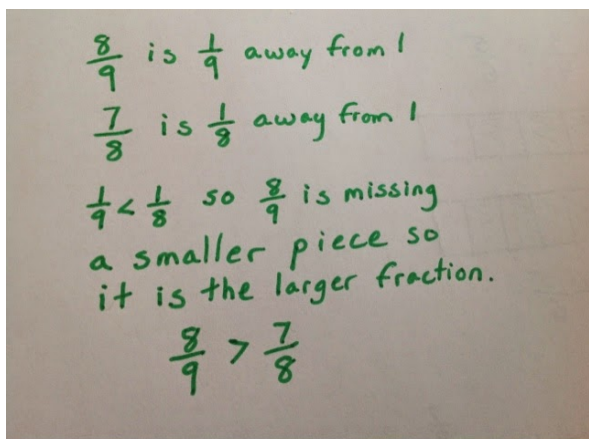 8/9 is 1/9 away from 1
7/8 is 1/8 away from 1
1/9 < 1/8 so 8/9 is missing
a smaller piece so
it is the larger fraction.
8/9 > 7/8